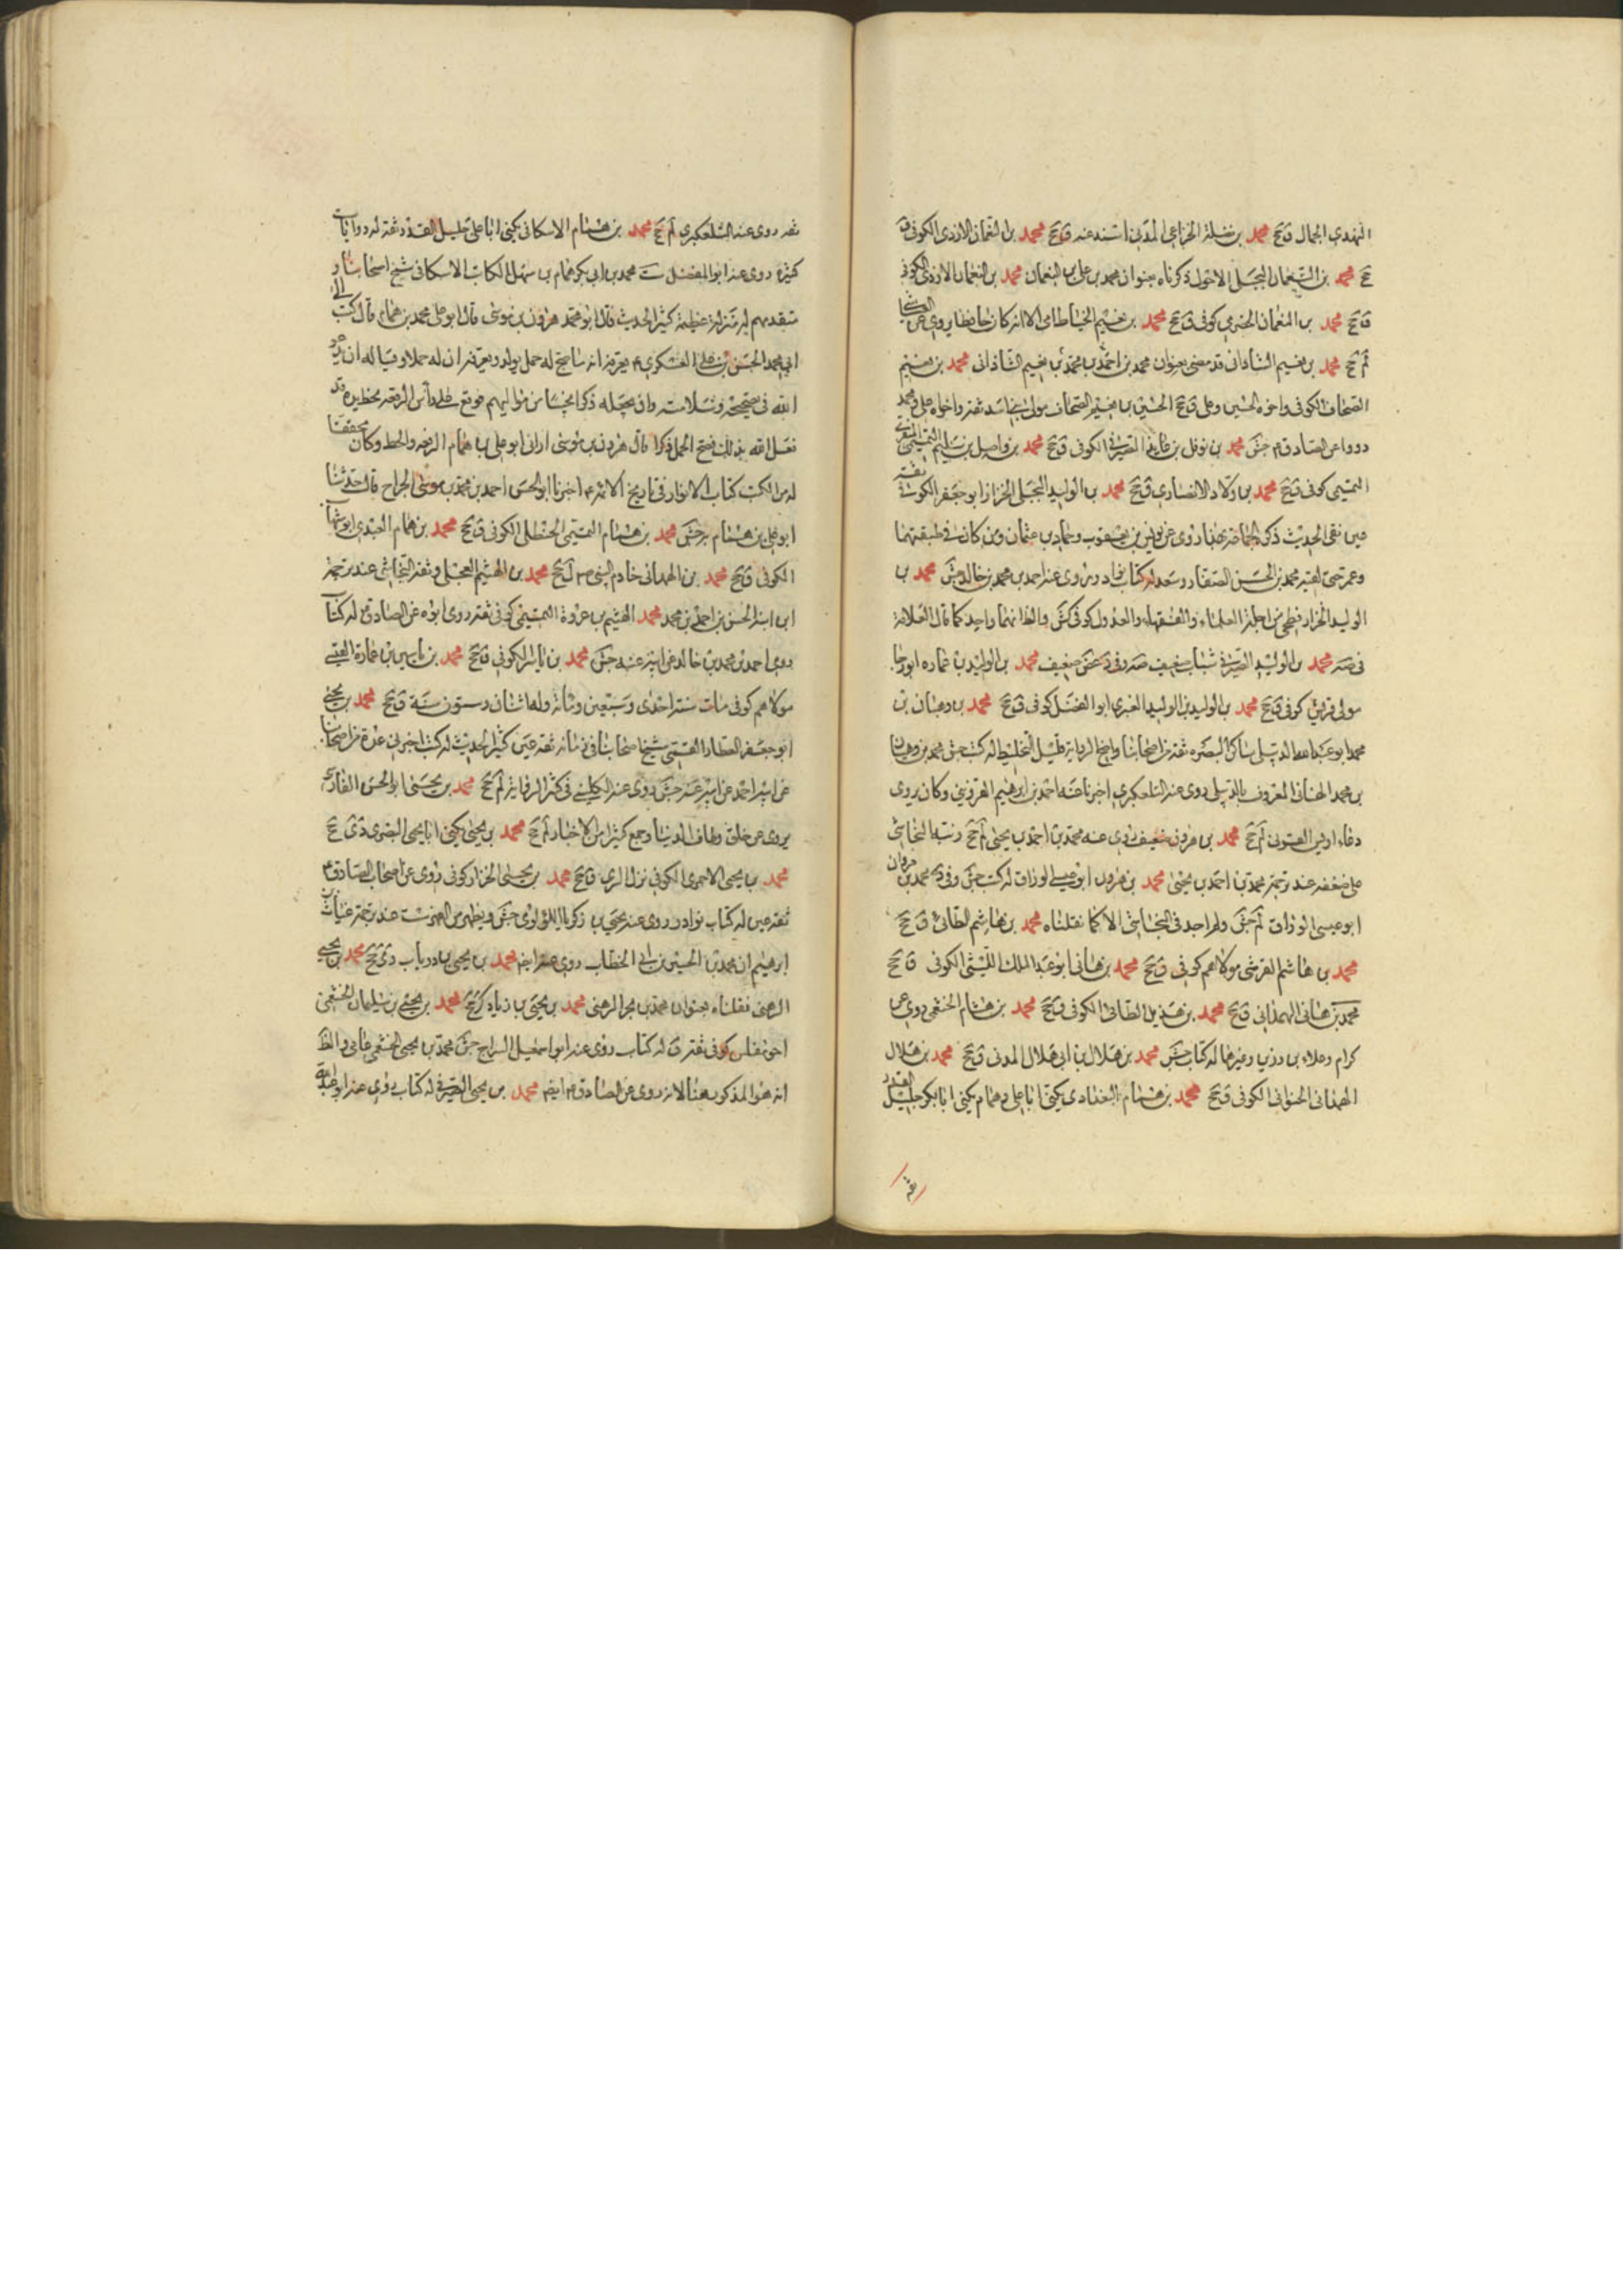 النهدي الجمال ق جخ محمد بن نضلة الخزاعي المدني اسند عنه ق جخ محمد بن النعمان الازدي الكوفي ق
جخ محمد بن النعمان البجلي الاحول ذكرناه بعنوان محمد بن علي بن النعمان محمد بن النعمان الازدي الكوفي
ق جخ محمد بن النعمان الحضرمي كوفي ق جخ محمد بن نعيم الخياط عامي الا انه كان حافظا يروي عن
لم جخ محمد بن نعيم الشاذاني قد مضى بعنوان محمد بن احمد بن محمد بن نعيم الشاذاني محمد بن نعيم
الصحاف الكوفي واخوه الحسين وعلي ق جخ الحسين بن نعيم الصحاف مولى بني اسد ثقة واخواه علي ومحمد
رووا عن الصادق جش محمد بن نوفل بن عائذ الصيرفي الكوفي ق جخ محمد بن واصل بن سليم التميمي المنقري
التميمي كوفي ق جخ محمد بن ولاد الانصاري ق جخ محمد بن الوليد البجلي الخزاز ابو جعفر الكوفي ثقة
عين نقي الحديث ذكره الجماعة بهذا روى عن يونس بن يعقوب وحماد بن عثمان ومن كان في طبقتهما
وعمر حتى لقيه محمد بن الحسن الصفار وسعد له كتاب نوادر روى عنه احمد بن محمد بن خالد جش محمد بن
الوليد الخزاز فطحي من اجلة العلماء والفقهاء والعدول كوفي كش والظ انهما واحد كما قال العلامة
في صه محمد بن الوليد الصيرفي شباب ضعيف صه وفي د غض ضعيف محمد بن الوليد بن عماره ابو رجا
مولى قريش كوفي ق جخ محمد بن الوليد بن الوليد العنبري ابو الفضل كوفي ق جخ محمد بن وهبان بن
محمد ابو عبد الله الدبيلي ساكن البصره ثقة من اصحابنا واضح الرواية قليل التخليط له كتب جش محمد بن وهبان
بن محمد الهنائي المعروف بالدبيلي روى عنه التلعكبري اخبرنا عنه احمد بن ابرهيم القزويني وكان يروي
دعاء اويس القرني لم جخ محمد بن هرون ضعيف روى عنه محمد بن احمد بن يحيى لم جخ ونبه النجاشي
على ضعفه عند ترجمة محمد بن احمد بن يحيى محمد بن هرون ابو عيسى الوراق له كتب جش وفي د محمد بن هرون
ابو عيسى الوراق لم جش ولم اجد في النجاشي الا كما نقلناه محمد بن هاشم الطائي ق جخ
محمد بن هاشم القرشي مولاهم كوفي ق جخ محمد بن هاني ابو عبد الملك الليثي الكوفي ق جخ
محمد بن هاني الهمداني ق جخ محمد بن هذيل الطائي الكوفي ق جخ محمد بن هشام الخثعمي روى عن
كرام وعلاء بن رزين وغيرهما له كتاب جش محمد بن هلال بن ابي هلال المدني ق جخ محمد بن هلال
الهمداني الكوفي ق جخ محمد بن همام البغدادي يكنى ابا علي وهمام يكنى ابا بكر جليل القدر
ثقة
ثقة روى عنه التلعكبري لم جخ محمد بن همام الاسكافي يكنى ابا علي جليل القدر ثقة له روايات
كثيرة روى عنه ابو المفضل ست محمد بن ابي بكر همام بن سهيل الكاتب الاسكافي شيخ اصحابنا و
متقدمهم له منزلة عظيمة كثير الحديث قال ابو محمد هرون بن موسى قال ابو علي محمد بن همام قال كتب ابي الى
ابي محمد الحسن بن علي العسكري يعرفه انه ما صح له حمل بولد ويعرفه ان له حملا ويساله ان يدعو
الله في تصحيحه وسلامته وان يجعله ذكرا نجيبا من مواليهم فوقع على راس الرقعة بخط يده قد
فعل الله ذلك فصح الحمل ذكرا قال هرون بن موسى اراني ابو علي بن همام الرقعة والخط وكان محققا
له من الكتب كتاب الانوار في تاريخ الائمة اخبرنا ابو الحسن احمد بن محمد بن موسى الجراح قال حدثنا
ابو علي بن همام به جش محمد بن همام التميمي الحنظلي الكوفي ق جخ محمد بن همام العبدي ابو شهاب
الكوفي ق جخ محمد بن الهمداني خادم النبي ل جخ محمد بن الهيثم العجلي وثقه النجاشي عند ترجمة
ابن ابنه الحسن بن احمد بن محمد محمد الهيثم بن عروة التميمي كوفي ثقة روى ابوه عن الصادق له كتاب
روى احمد بن محمد بن خالد عن ابيه عنه جش محمد بن ياسر الكوفي ق جخ محمد بن ياسين بن عمارة العيني
مولاهم كوفي مات سنة احدى وسبعين ومائة وله اثنان وستون سنة ق جخ محمد بن يحيى
ابو جعفر العطار القمي شيخ اصحابنا في زمانه ثقة عين كثير الحديث له كتب اخبرني عدة من اصحابنا
عن ابنه احمد عن ابيه عنه جش روى عنه الكليني ق كثير الرواية لم جخ محمد بن يحيى ابو الحسن الفارسي
يروي عن خلق وطاف الدنيا وجمع كثيرا من الاخبار لم جخ محمد بن يحيى يكنى ابا يحيى البصري دي جخ
محمد بن يحيى الاحمري الكوفي نزل الري ق جخ محمد بن يحيى الخزاز كوفي روى عن اصحاب الصادق
ثقة عين له كتاب نوادر روى عنه يحيى بن زكريا اللؤلؤي جش ويظهر من الفهرست عند ترجمة غياث بن
ابرهيم ان محمد بن الحسين بن ابي الخطاب روى عنه ايضا محمد بن يحيى بن درياب دي جخ محمد بن يحيى
الرهني نقلناه بعنوان محمد بن بحر الرهني محمد بن يحيى بن زياد جخ محمد بن يحيى بن سليمان الخثعمي
اخو مغلس كوفي ثقة ق له كتاب روى عنه ابو اسمعيل السراج جش محمد بن يحيى الخثعمي عامي والظ
انه هو المذكور هنا لانه روى عن الصادق ايضا محمد بن يحيى الصيرفي له كتاب روى عنه ابو عبد الله